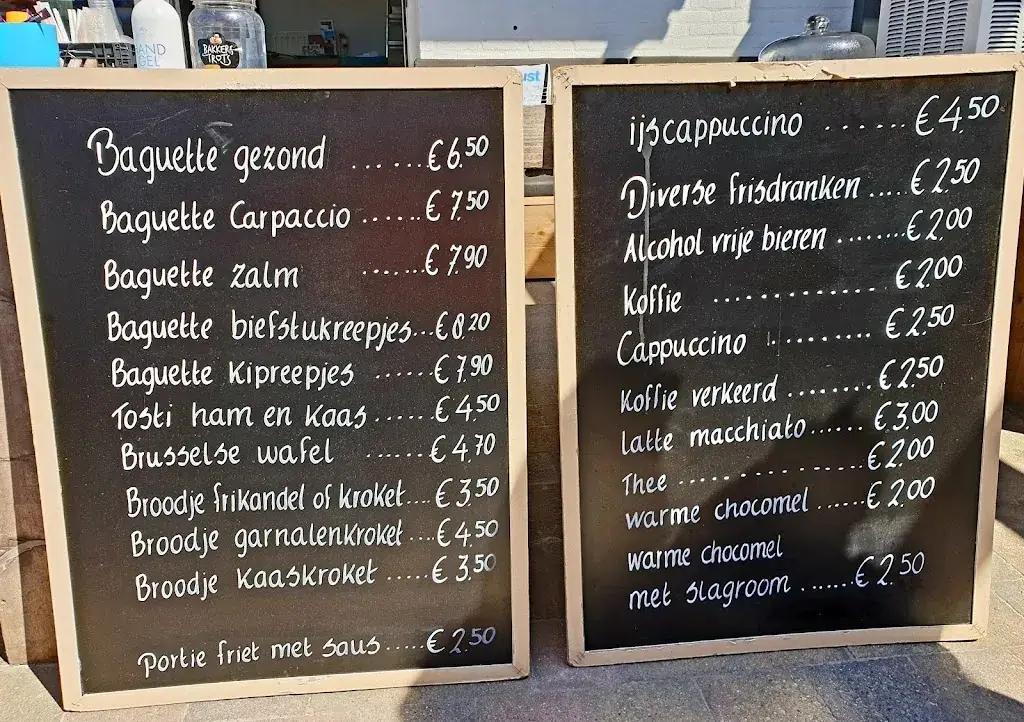 BAKKERS
TROTS
Baguette gezond ...... € 6.50
Baguette Carpaccio ...... € 7.50
Baguette zalm ...... € 7.90
Baguette biefstukreepjes... € 8.20
Baguette Kipreepjes ...... € 7.90
Tosti ham en kaas ...... € 4.50
Brusselse wafel ...... € 4.70
Broodje frikandel of kroket.... € 3.50
Broodje garnalenkroket .... € 4.50
Broodje kaaskroket ..... € 3.50
Portie friet met saus ..... € 2.50
ijscappuccino ...... € 4.50
Diverse frisdranken .... € 2.50
Alcohol vrije bieren ....... € 2.00
Koffie ............... € 2.00
Cappuccino .......... € 2.50
Koffie verkeerd ........ € 2.50
latte macchiato ...... € 3.00
Thee ............... € 2.00
warme chocomel ..... € 2.00
warme chocomel
met slagroom ...... € 2.50